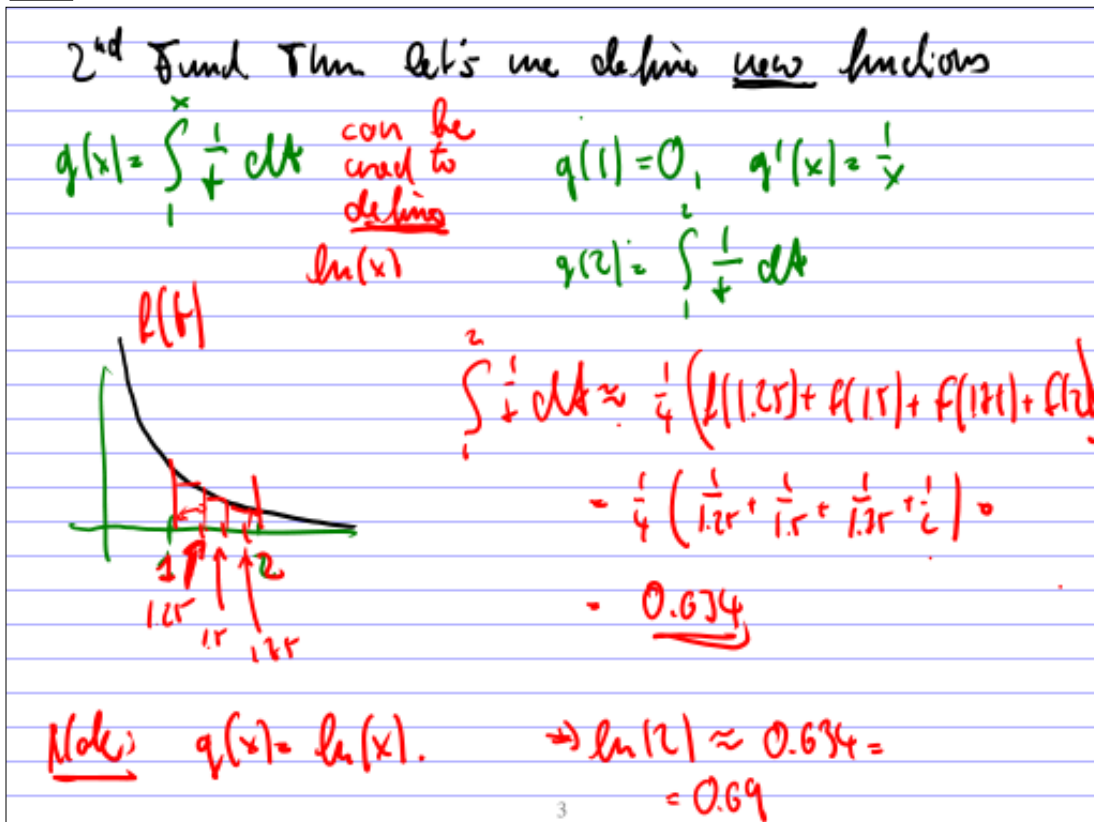 2nd Fund Thm let's me define new functions
g(x) = ∫₁ˣ 1/t dt can be used to define ln(x)
g(1) = 0, g'(x) = 1/x
g(2) = ∫₁² 1/t dt
f(t)
1 2
1.25 1.5 1.75
∫₁² 1/t dt ≈ 1/4 (f(1.25) + f(1.5) + f(1.75) + f(2)
= 1/4 (1/1.25 + 1/1.5 + 1/1.75 + 1/2) =
= 0.634
Note: g(x) = ln(x). → ln(2) ≈ 0.634 =
= 0.69
3